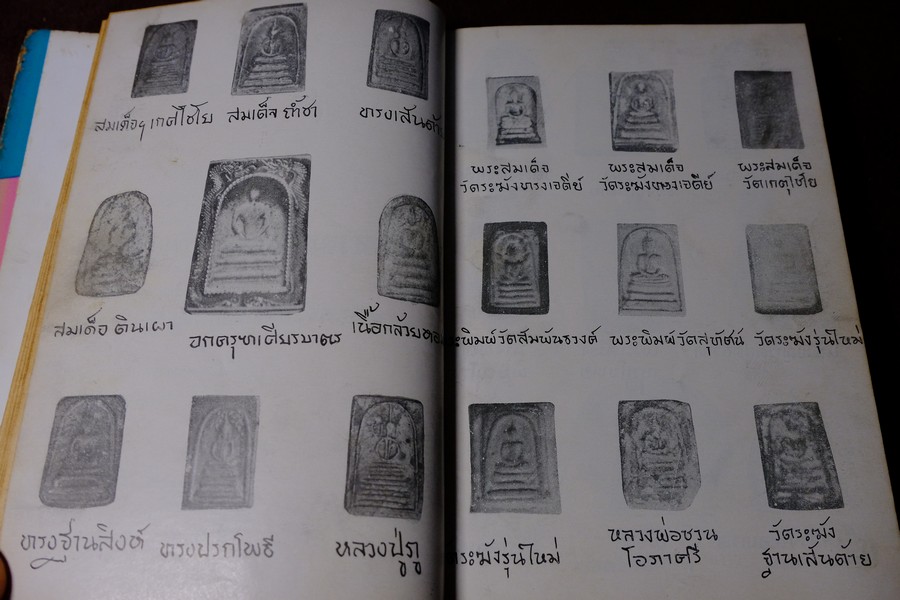 สมเด็จฯ เกศไชโย
สมเด็จ ถ้ำชา
ทรงเส้นด้าย
สมเด็จ ตีนเผา
อกครุฑเศียรบาตร
เนื้อกล้วยหอม
ทรงฐานสิงห์
ทรงปรกโพธิ
หลวงปู่ภู
พระสมเด็จ
วัดระฆังทรงเจดีย์
พระสมเด็จ
วัดระฆังทรงเจดีย์
พระสมเด็จ
วัดเกศไชโย
พระพิมพ์วัดสัมพันธวงศ์
พระพิมพ์วัดสุทัศน์
วัดระฆังรุ่นใหม่
ระฆังรุ่นใหม่
หลวงพ่อชวน
โอภาศรี
วัดระฆัง
ฐานเส้นด้าย